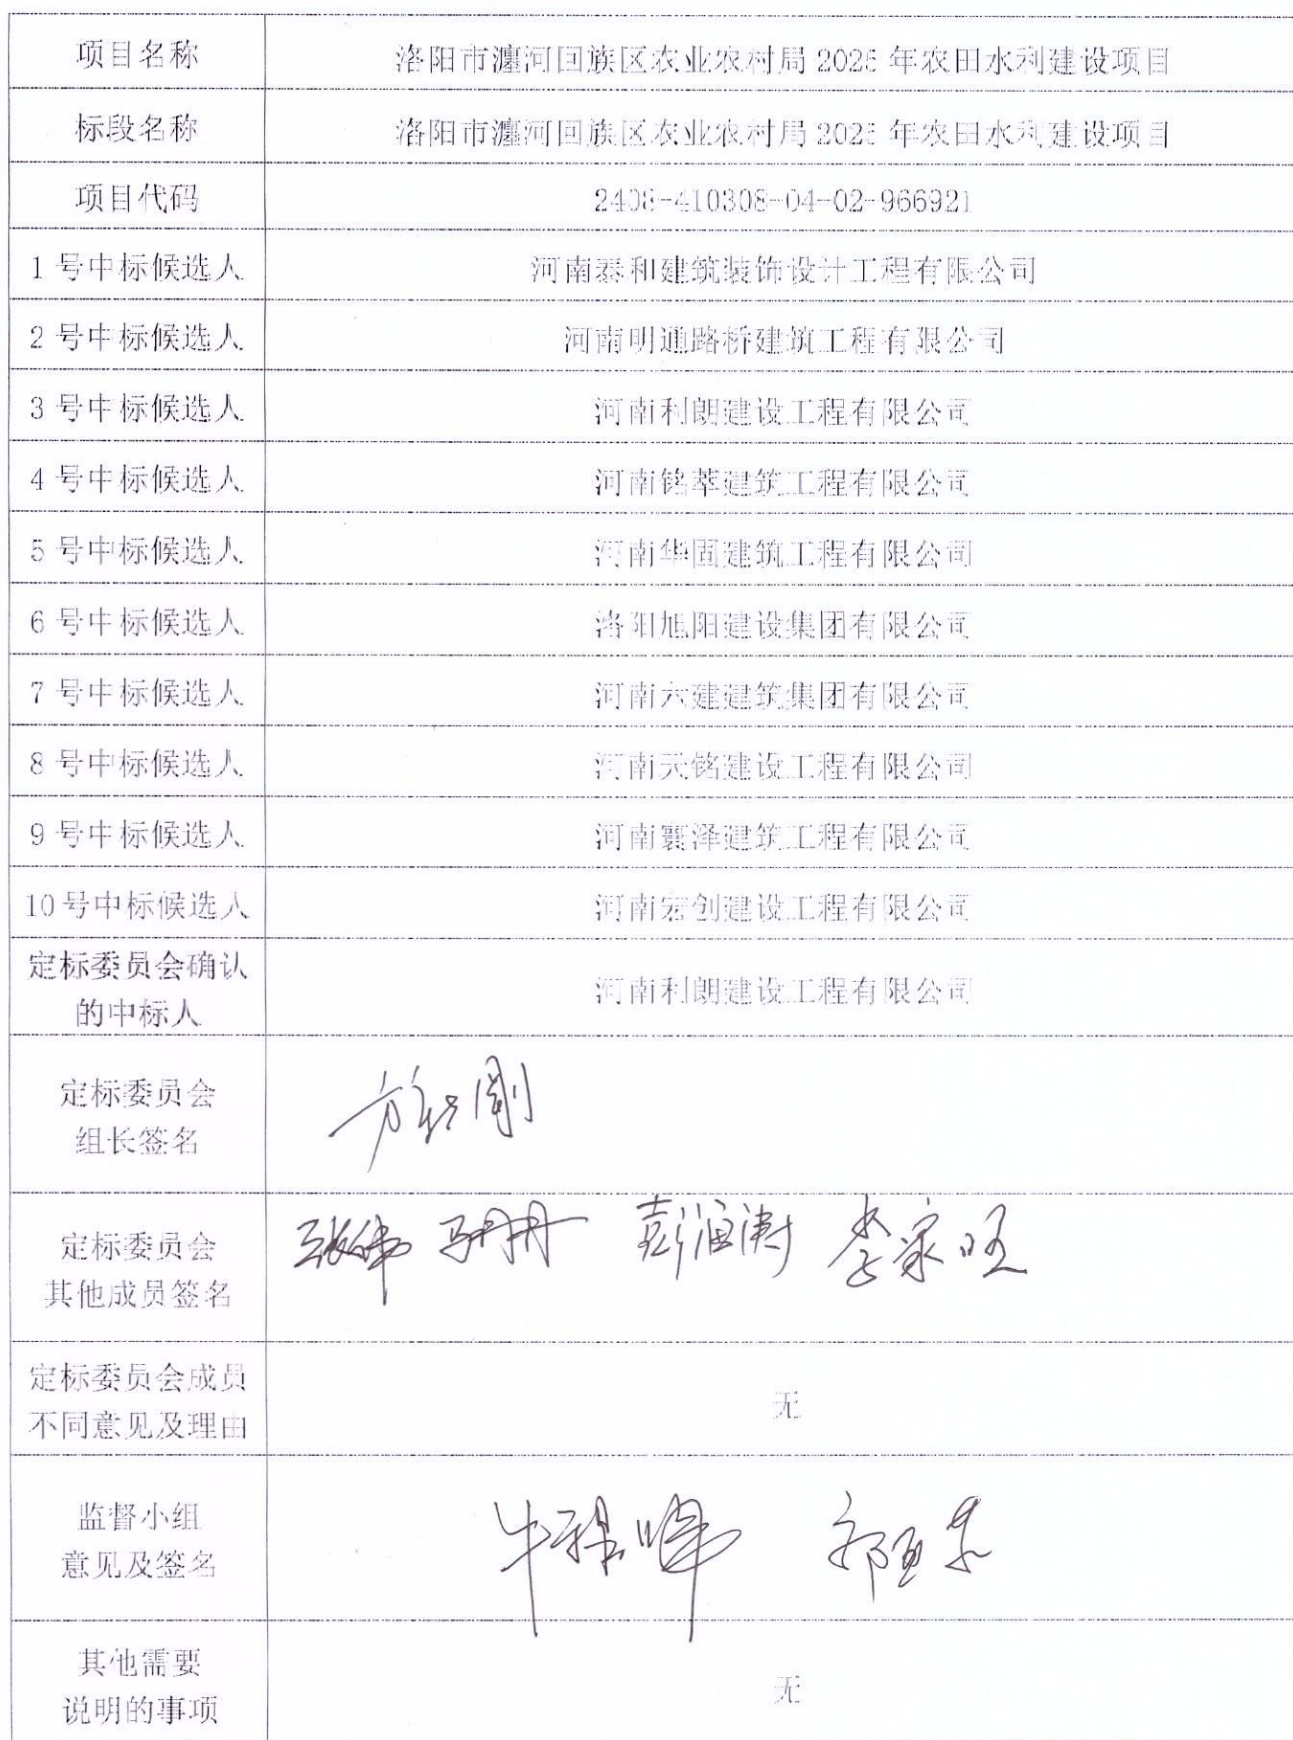 项目名称 洛阳市瀍河回族区农业农村局 2025 年农田水利建设项目
标段名称 洛阳市瀍河回族区农业农村局 2025 年农田水利建设项目
项目代码 2408-410308-04-02-966921
1 号中标候选人 河南泰和建筑装饰设计工程有限公司
2 号中标候选人 河南明通路桥建筑工程有限公司
3 号中标候选人 河南利朗建设工程有限公司
4 号中标候选人 河南铭萃建筑工程有限公司
5 号中标候选人 河南华固建筑工程有限公司
6 号中标候选人 洛阳旭阳建设集团有限公司
7 号中标候选人 河南六建建筑集团有限公司
8 号中标候选人 河南天铭建设工程有限公司
9 号中标候选人 河南寰泽建筑工程有限公司
10 号中标候选人 河南宏创建设工程有限公司
定标委员会确认
的中标人 河南利朗建设工程有限公司
定标委员会
组长签名
定标委员会
其他成员签名 张伟 马丹丹 彭润涛 李家旺
定标委员会成员
不同意见及理由 无
监督小组
意见及签名
其他需要
说明的事项 无